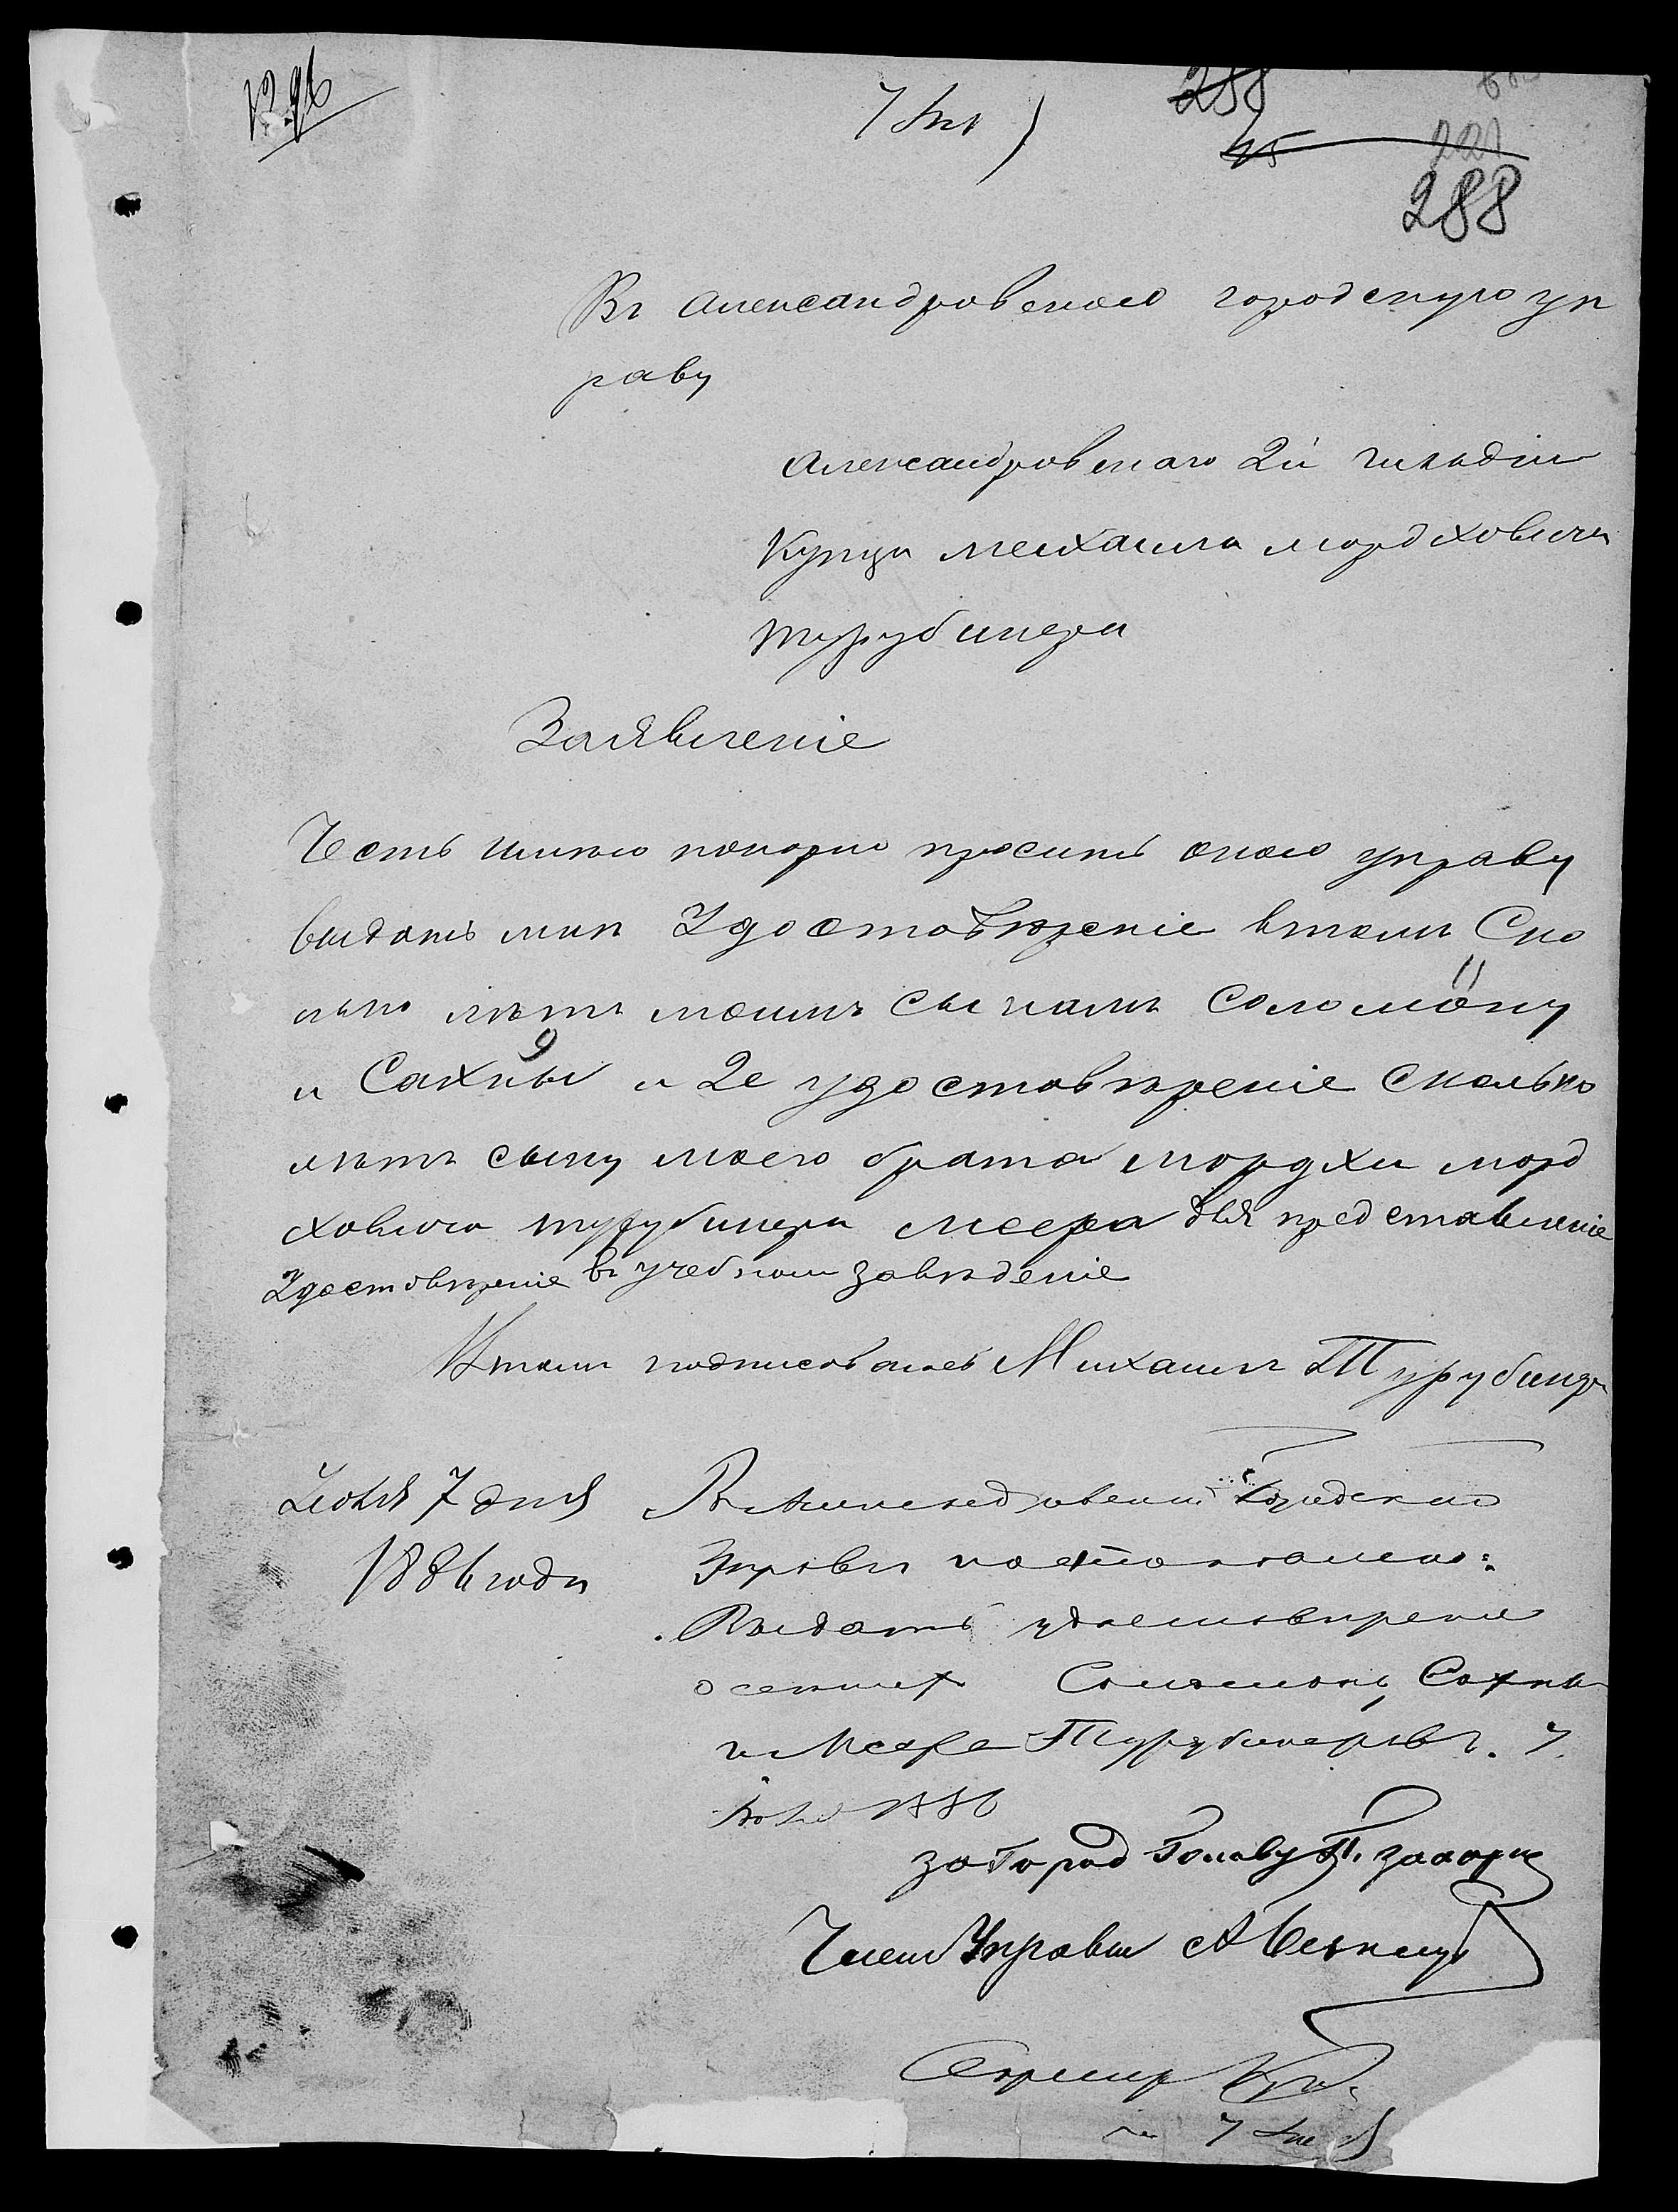 288
45
221
288
Въ александровскою городскую уп
раву
александровскаго 2й гильдіи
Купца меихаила мордховича
турубинера
Заявленіе
Честь имею покорно просить оною управу
выдать мнѣ Удостовѣреніе втомъ Ско
лько лѣтъ моимъ сыновамъ Соломону
и Сахны и 2е удостовѣреніе Сколько
лѣтъ сыну моего брата мордхи морд
ховича турубинера меера для представленіе
Удостовѣреніе въ учебномъ завѣденіе
Ктому подписоваюсь Михаилъ Турубинеръ
Іюня 7 дня
1886 года
Въ Александровской Городской
Управѣ постановлено:
Выдать удостовѣреніе
о семъ Соломону, Сахнѣ
и Меера Турубинеровъ. 7
Іюня 1886
за Город Голову П.
Членъ Управы
Секретарь
7